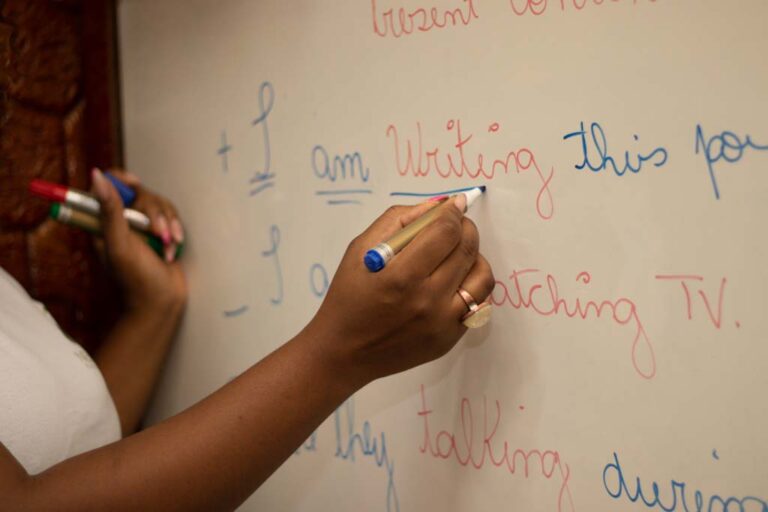 present
+ I am Writing this
- I atching TV.
they talking during